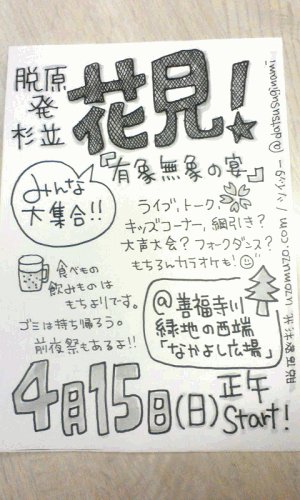 脱原
発
杉並
花見!
『有象無象の宴』
みんな
大集合!!
ライブ,トーク
キッズコーナー,綱引き?
大声大会?フォークダンス?
もちろんカラオケも!
食べもの
飲みものは
もちよりです。
ゴミは持ち帰ろう。
前夜祭もあるよ!!
@善福寺川
緑地の西端
「なかよし広場」
4月15日(日)正午
Start!
脱原発杉並 uzomuzo.com